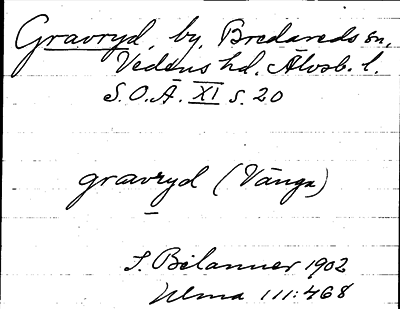 Gravryd, by, Bredareds sn,
Vedens hd. Älvsb. l.
S.O.Ä. XI s. 20
gravryd (Vånga)
1902
Ulma 111:468